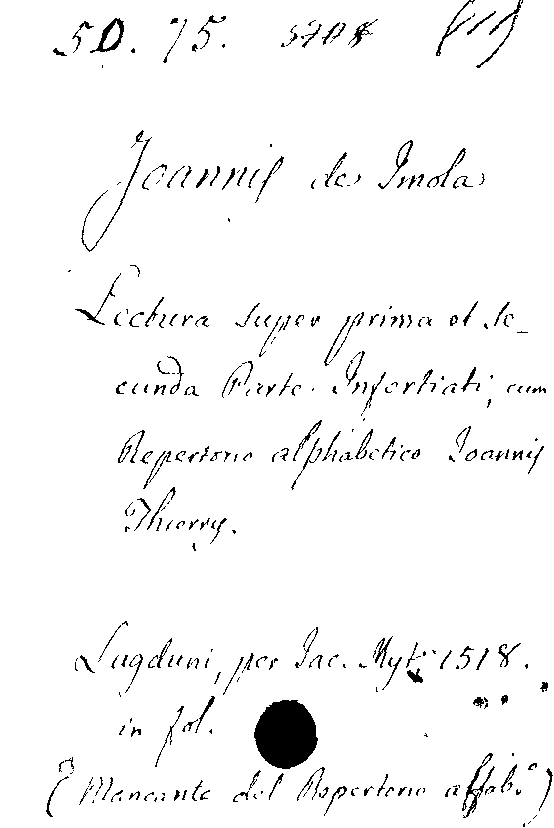 50. 75. 5708
Joannis de Imola
Lectura super prima et se_
cunda Parte Infortiati, cum
Repertorio alphabetico Joannis
Thierry.
Lugduni, per Jac. Myt 1518.
in fol.
(Mancante del Repertorio alfab.º)